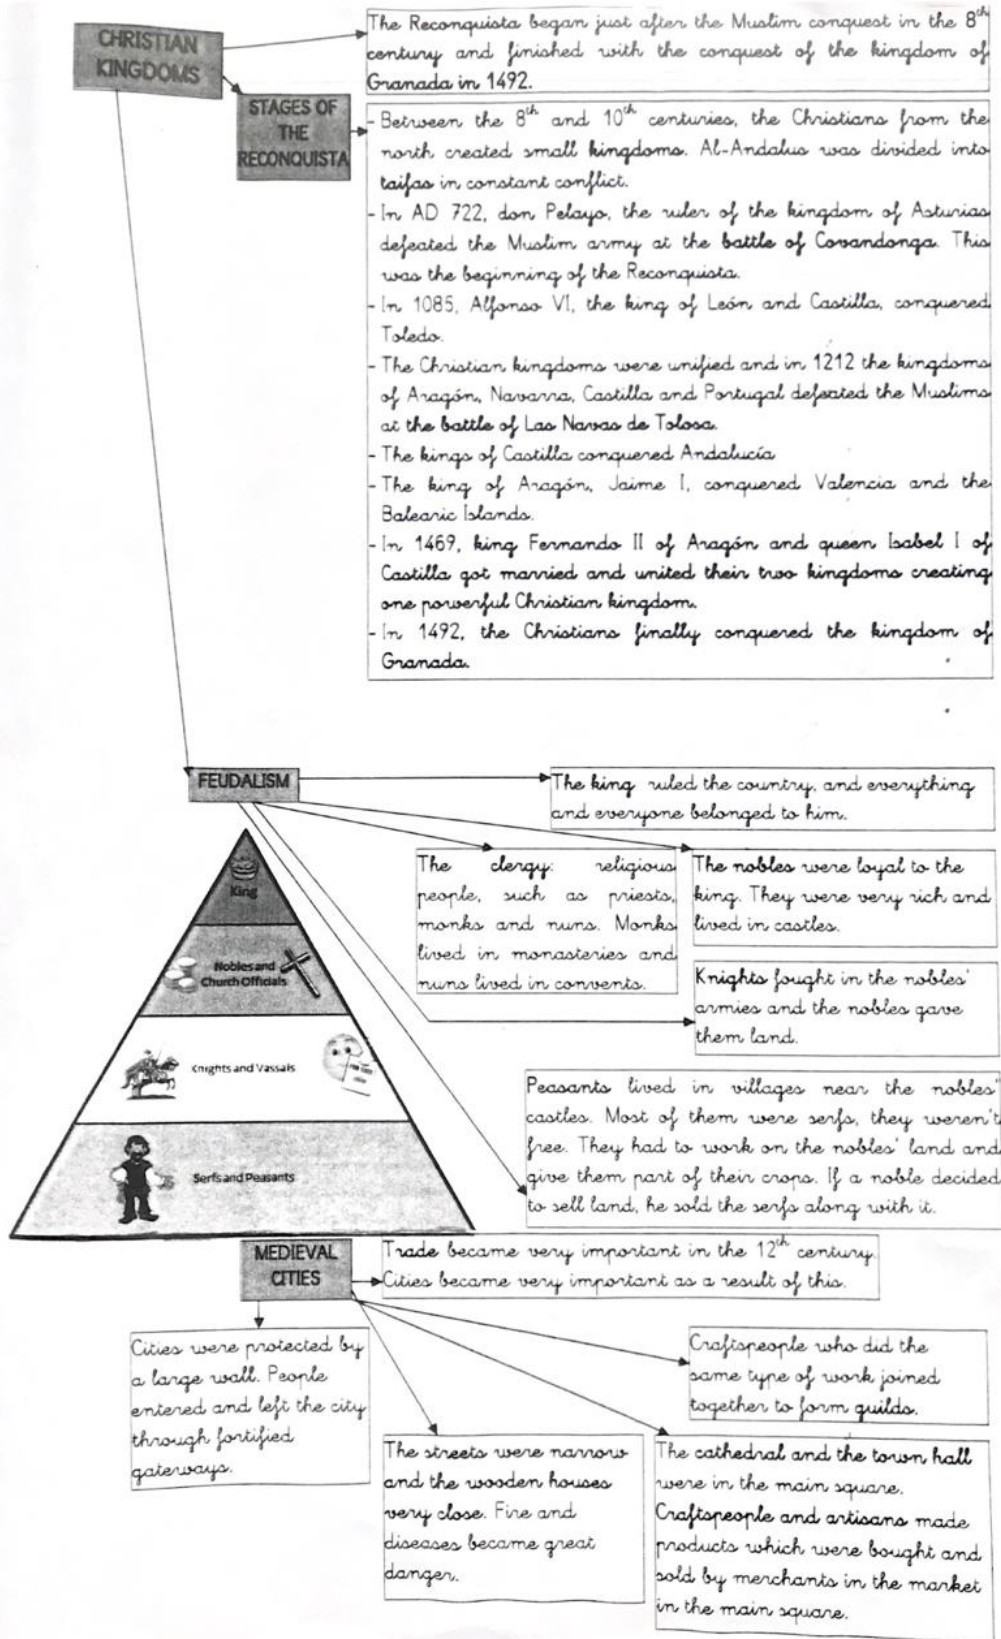 CHRISTIAN
KINGDOMS
The Reconquista began just after the Muslim conquest in the 8th
century and finished with the conquest of the kingdom of
Granada in 1492.
STAGES OF
THE
RECONQUISTA
- Between the 8th and 10th centuries, the Christians from the
north created small kingdoms. Al-Andalus was divided into
taifas in constant conflict.
- In AD 722, don Pelayo, the ruler of the kingdom of Asturias
defeated the Muslim army at the battle of Covandonga. This
was the beginning of the Reconquista.
- In 1085, Alfonso VI, the king of León and Castilla, conquered
Toledo.
- The Christian kingdoms were unified and in 1212 the kingdoms
of Aragón, Navarra, Castilla and Portugal defeated the Muslims
at the battle of Las Navas de Tolosa.
- The kings of Castilla conquered Andalucía
- The king of Aragón, Jaime I, conquered Valencia and the
Balearic Islands.
- In 1469, king Fernando II of Aragón and queen Isabel I of
Castilla got married and united their two kingdoms creating
one powerful Christian kingdom.
- In 1492, the Christians finally conquered the kingdom of
Granada.
FEUDALISM
The king ruled the country, and everything
and everyone belonged to him.
The clergy: religious
people, such as priests,
monks and nuns. Monks
lived in monasteries and
nuns lived in convents.
The nobles were loyal to the
king. They were very rich and
lived in castles.
Knights fought in the nobles'
armies and the nobles gave
them land.
King
Nobles and
Church Officials
Knights and Vassals
Serfs and Peasants
Peasants lived in villages near the nobles'
castles. Most of them were serfs, they weren't
free. They had to work on the nobles' land and
give them part of their crops. If a noble decided
to sell land, he sold the serfs along with it.
MEDIEVAL
CITIES
Trade became very important in the 12th century.
Cities became very important as a result of this.
Cities were protected by
a large wall. People
entered and left the city
through fortified
gateways.
Craftspeople who did the
same type of work joined
together to form guilds.
The streets were narrow
and the wooden houses
very close. Fire and
diseases became great
danger.
The cathedral and the town hall
were in the main square.
Craftspeople and artisans made
products which were bought and
sold by merchants in the market
in the main square.